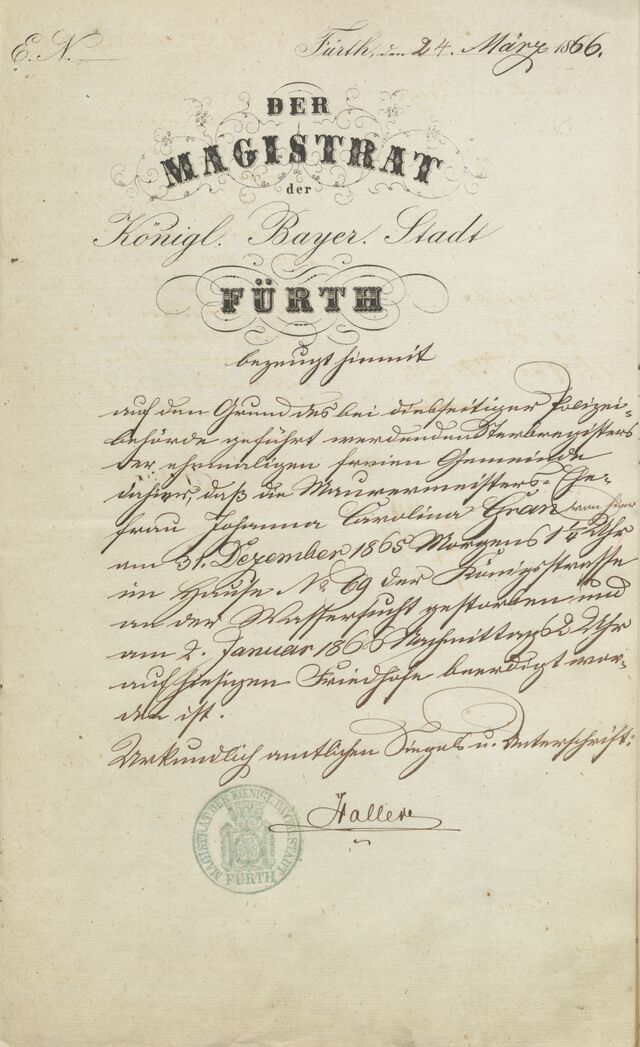 E. N.
Fürth, den 24. März 1866.
DER
MAGISTRAT
der
Königl. Bayer. Stadt
FÜRTH
bezeugt hiermit
auf den Grund des bei diesseitiger Polizei-
behörde geführt werdenden Sterbregisters
der ehemaligen freien Gemeinde
dahier, daß die Maurermeisters-Ehe-
frau Johanna Carolina Gran von hier
am 31. Dezember 1865 Morgens 1 1/4 Uhr
im Hause No 69 der Königsstrasse
an der Wassersucht gestorben und
am 2. Januar 1866 Nachmittags 2 Uhr
auf hiesigen Friedhofe beerdigt wor-
den ist.
Urkundlich amtlichen Siegels u. Unterschrift:
Haller
MAGISTRAT DER KÖNIGL. BAYER. STADT
FÜRTH